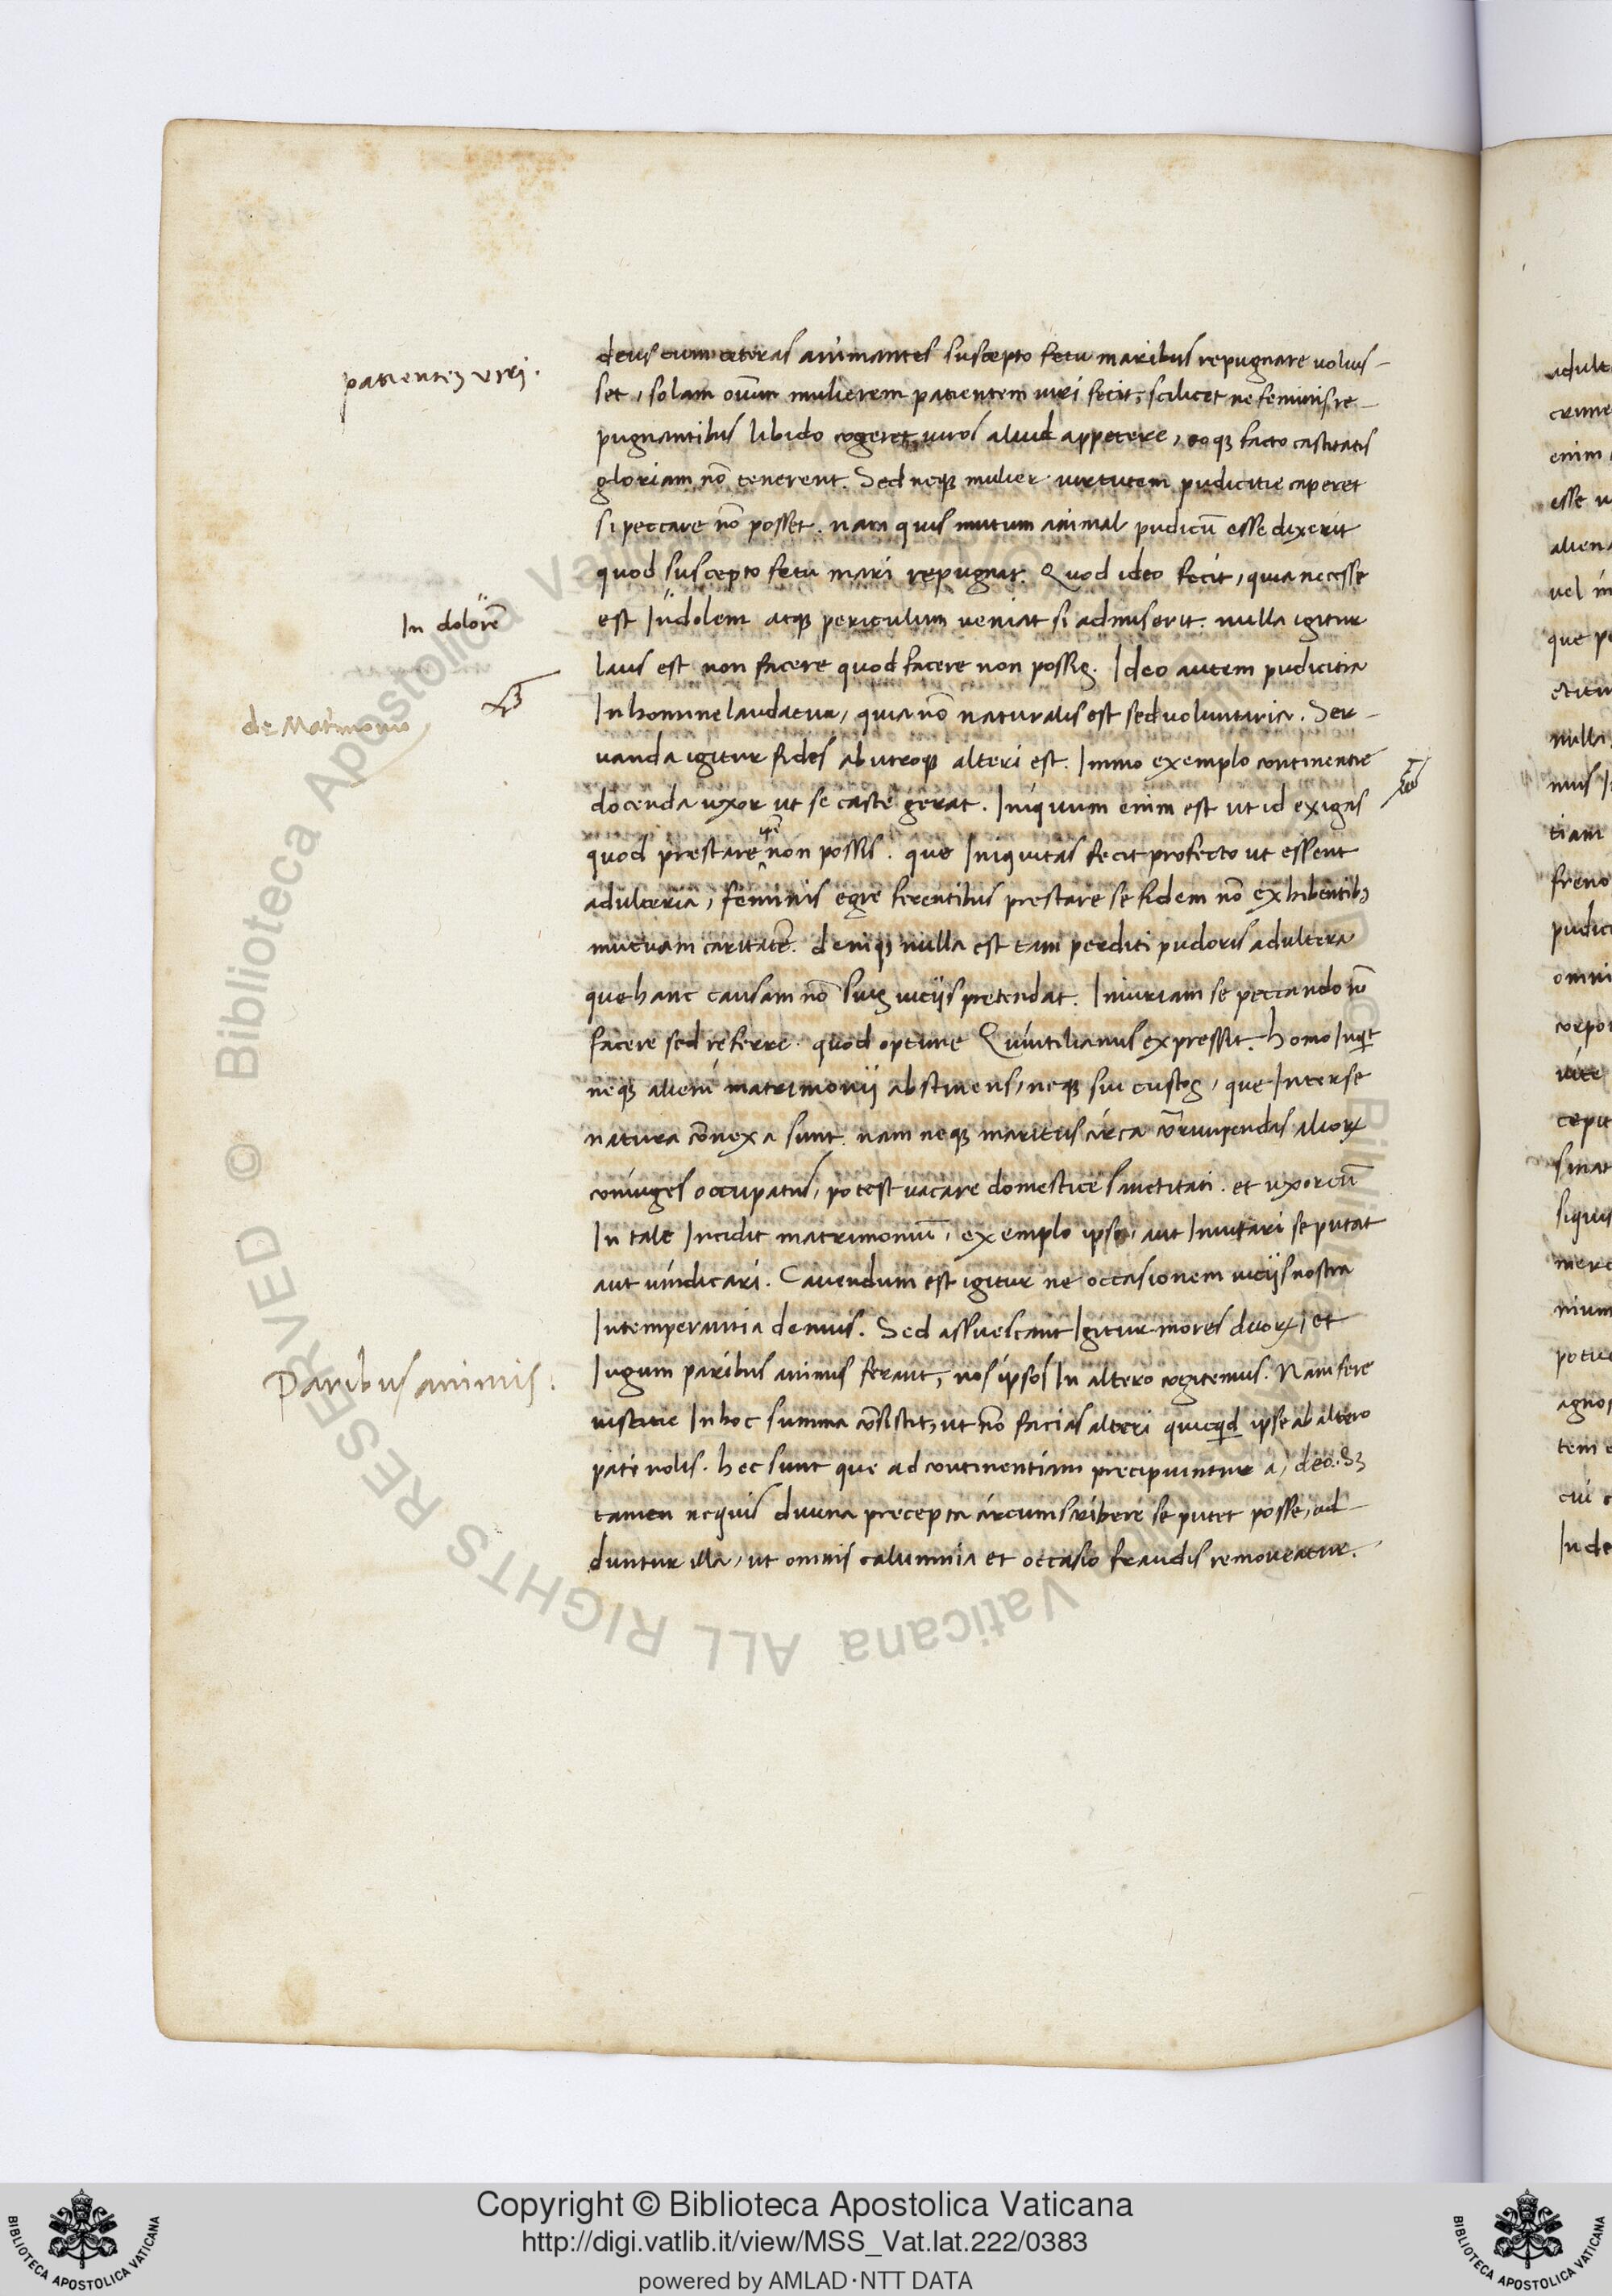 deus cum ceteras animantes suscepto fetu maribus repugnare voluis-
patientez viri.
set, solam oı̄um mulierem patientem viri fecit, scilicet ne feminis re-
pugnantibus libido cogeret viros aliud appetere, eoqz facto castitatis
gloriam nō tenerent. Sed neqz mulier virtutem pudicitie caperet
si peccare nō posset. nam quis mutum animal pudicū esse dixerit
quod suscepto fetu mari repugnat. Quod ideo facit, quia necesse
In dolorē
est In dolem atqz periculum veniat si admiserit. nulla igitur
laus est non facere quod facere non possis. Ideo autem pudicitia
de Matrimonio
In homine laudatur, quia nō naturalis est sed voluntaria. Ser-
vanda igitur fides ab utroqz alteri est. Immo exemplo continentie
docenda uxor ut se caste gerat. Iniquum enim est ut id exigas
quod prestare ipē non possis. que Iniquitas fecit profecto ut essent
adulteria, feminis egre ferentibus prestare se fidem nō exhibentibz
mutuam caritatē. deniqz nulla est tam perditi pudoris adultera
que hanc causam nō suis viciis pretendat. Iniuriam se peccando nō
facere sed referre. quod optime Quintilianus expressit. homo Inqt
neqz alieni matrimonij abstinens, neqz sui custos, que Inter se
natura cōnexa sunt. nam neqz maritus circa cōrrumpendas alioꝝ
coniuges occupatus, potest vacare domestice sanctitati. et uxor cū
In tale Incidit matrimoniū, exemplo ipso, aut Imitari se putat
aut vindicari. Cavendum est igitur ne occasionem viciis nostra
Intemperantia demus. Sed assuescant Igitur mores duoꝝ, et
Paribus animis.
Iugum paribus animis ferant, nos ipsos In altero cogitemus. Nam fere
iustitie In hoc summa cōsistit, ut nō facias alteri quicqd ipse ab altero
pati nolis. hec sunt que ad continentiam precipiuntur a, deo. Sz
tamen nequis divina precepta circumscribere se putet posse, ad-
duntur illa, ut omnis calumnia et occasio fraudis removeatur.
Copyright © Biblioteca Apostolica Vaticana
http://digi.vatlib.it/view/MSS_Vat.lat.222/0383
powered by AMLAD·NTT DATA